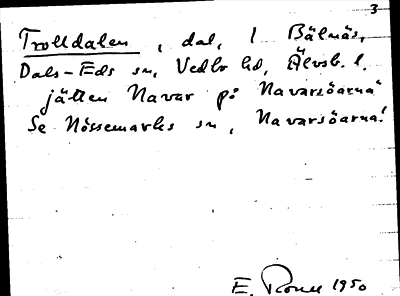 3
Trolldalen, dal, 1 Bälnäs,
Dals-Eds sn, Vedbo hd, Älvsb. l.
jätten Navar på Navarsöarna
Se Nössemarks sn, Navarsöarna!
E. 1950